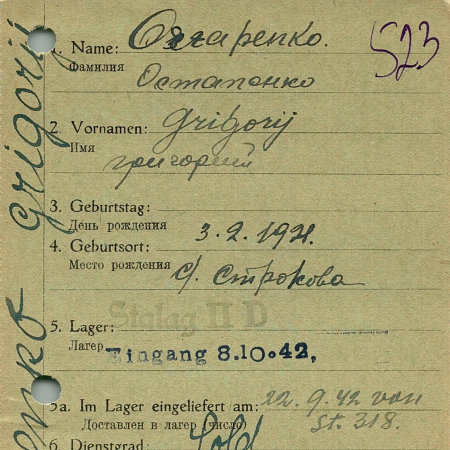 1. Name: Озгаренко.
Фамилия
Остапенко
523
2. Vornamen: Grigorij
Имя
григорий
3. Geburtstag:
День рождения 3.2.1921.
4. Geburtsort:
Место рождения с/. Строкова
Stalag II D
5. Lager:
Лагер Eingang 8.10.42,
5a. Im Lager eingeliefert am: 22.9.42 von
Доставлен в лагер (число) St. 318.
6. Dienstgrad: Sold
grigorij